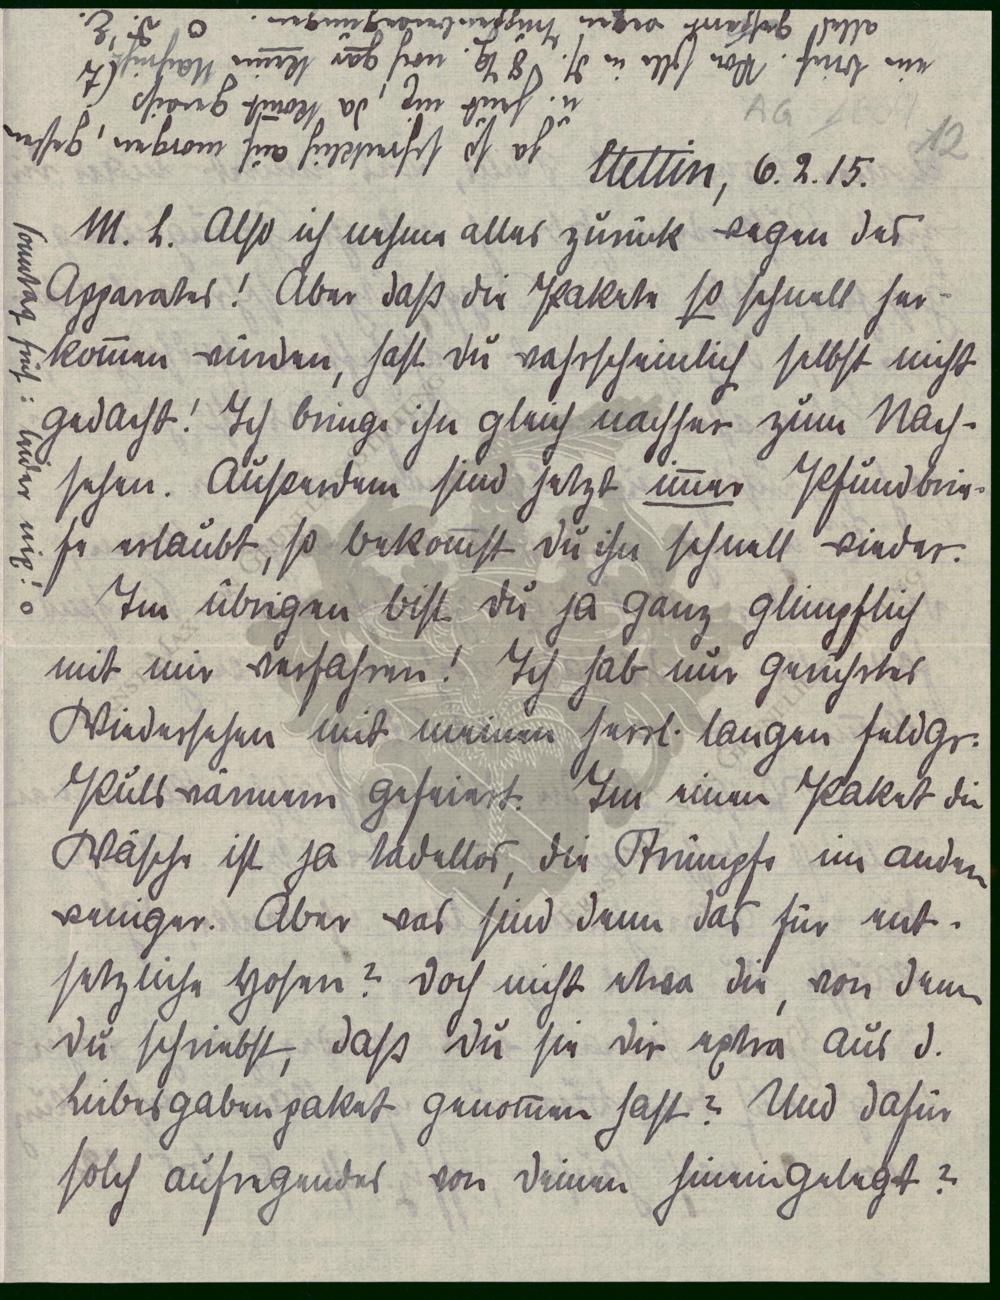 Stettin, 6.2.15.
M. L. Also ich nehme alles zurück wegen des
Apparates! Aber daß die Pakete so schnell her-
kom̅en würden, hast du wahrscheinlich selbst nicht
gedacht! Ich bringe ihn gleich nachher zum Nach-
sehen. Außerdem sind jetzt im̅er Pfundbrie-
fe erlaubt, so bekom̅st du ihn schnell wieder.
Im übrigen bist du ja ganz glimpflich
mit mir verfahren! Ich hab nur gerührtes
Wiedersehen mit meinen herrl. langen feldgr.
Pulswärmern gefeiert. Im einen Paket die
Wäsche ist ja tadellos, die Strümpfe im andern
weniger. Aber was sind denn das für ent-
setzliche Hosen? Doch nicht etwa die, von denen
du schriebst, daß du sie dir extra aus d.
Liebesgabenpaket genom̅en hast? Und dafür
solch aufregendes von deinen hineingelegt?
sonntag früh: leider nix! o
ja so schrecklich auf morgen, gestern
u. heut nix, da kom̅t gewiss
ein Brief. War heute in d. noch gar keine Nachricht
alles gesperrt wegen Truppenbewegungen.